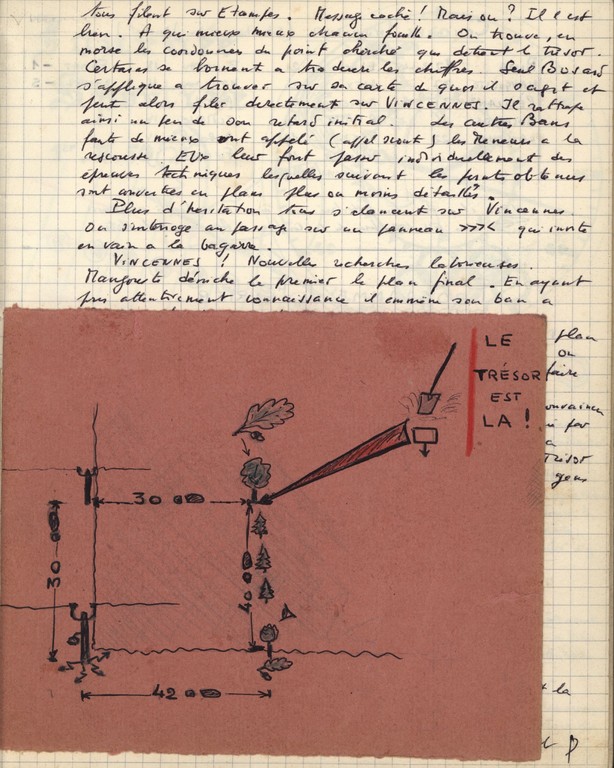 tous filent sur Etampes. Message caché ! Mais où ? Il est
bien. A qui mieux mieux chacun fouille. On trouve, en
morse les coordonnées du point cherché qui detient le trésor.
Certains se bornent a traduire les chiffres. Seul Busard
s'applique a trouver sur sa carte de quoi il s'agit et
peut alors filer directement sur VINCENNES. Il rattrape
ainsi un peu de son retard initial. Les autres Bans
faute de mieux ont appelé (appel scout) les Meneurs a la
rescousse. EUX leur font passer individuellement des
épreuves techniques lesquelles suivant les points obtenus
sont converties en plans plus ou moins détaillés.
Plus d'hesitation tous s'elancent sur Vincennes.
On s'interroge au passage sur un panneau >>>< qui invite
en vain a la bagarre.
VINCENNES ! Nouvelles recherches laborieuses.
Mangouste déniche le premier le plan final. En ayant
pris attentivement connaissance il emmène son ban a
plan
ou
faire
Trésor
gens
la
LE
TRÉSOR
EST
LA !
30
30
40
5
42